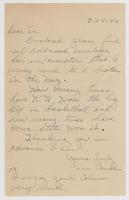 Dear Sir
Enclosed please find
self addressed envelope
for information that I
may send to a brother
in the Navy.
How many times
have K. U. won the big
six in basketball and
how many times have
Iowa State won it.
Thanking you in
advance I am
Yours Truly
I enjoy your column
very much